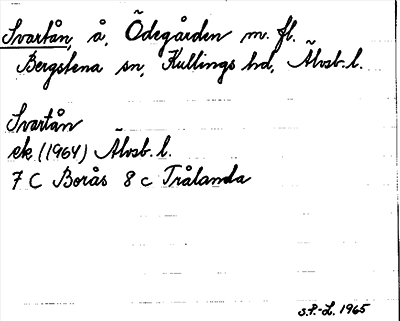 Svartån, å, Ödegården m. fl.
Bergstena sn, Kullings hd, Älvsb. l.
Svartån
ek (1964) Älvsb. l.
7 C Borås 8 c Trålanda
S.P.-L. 1965